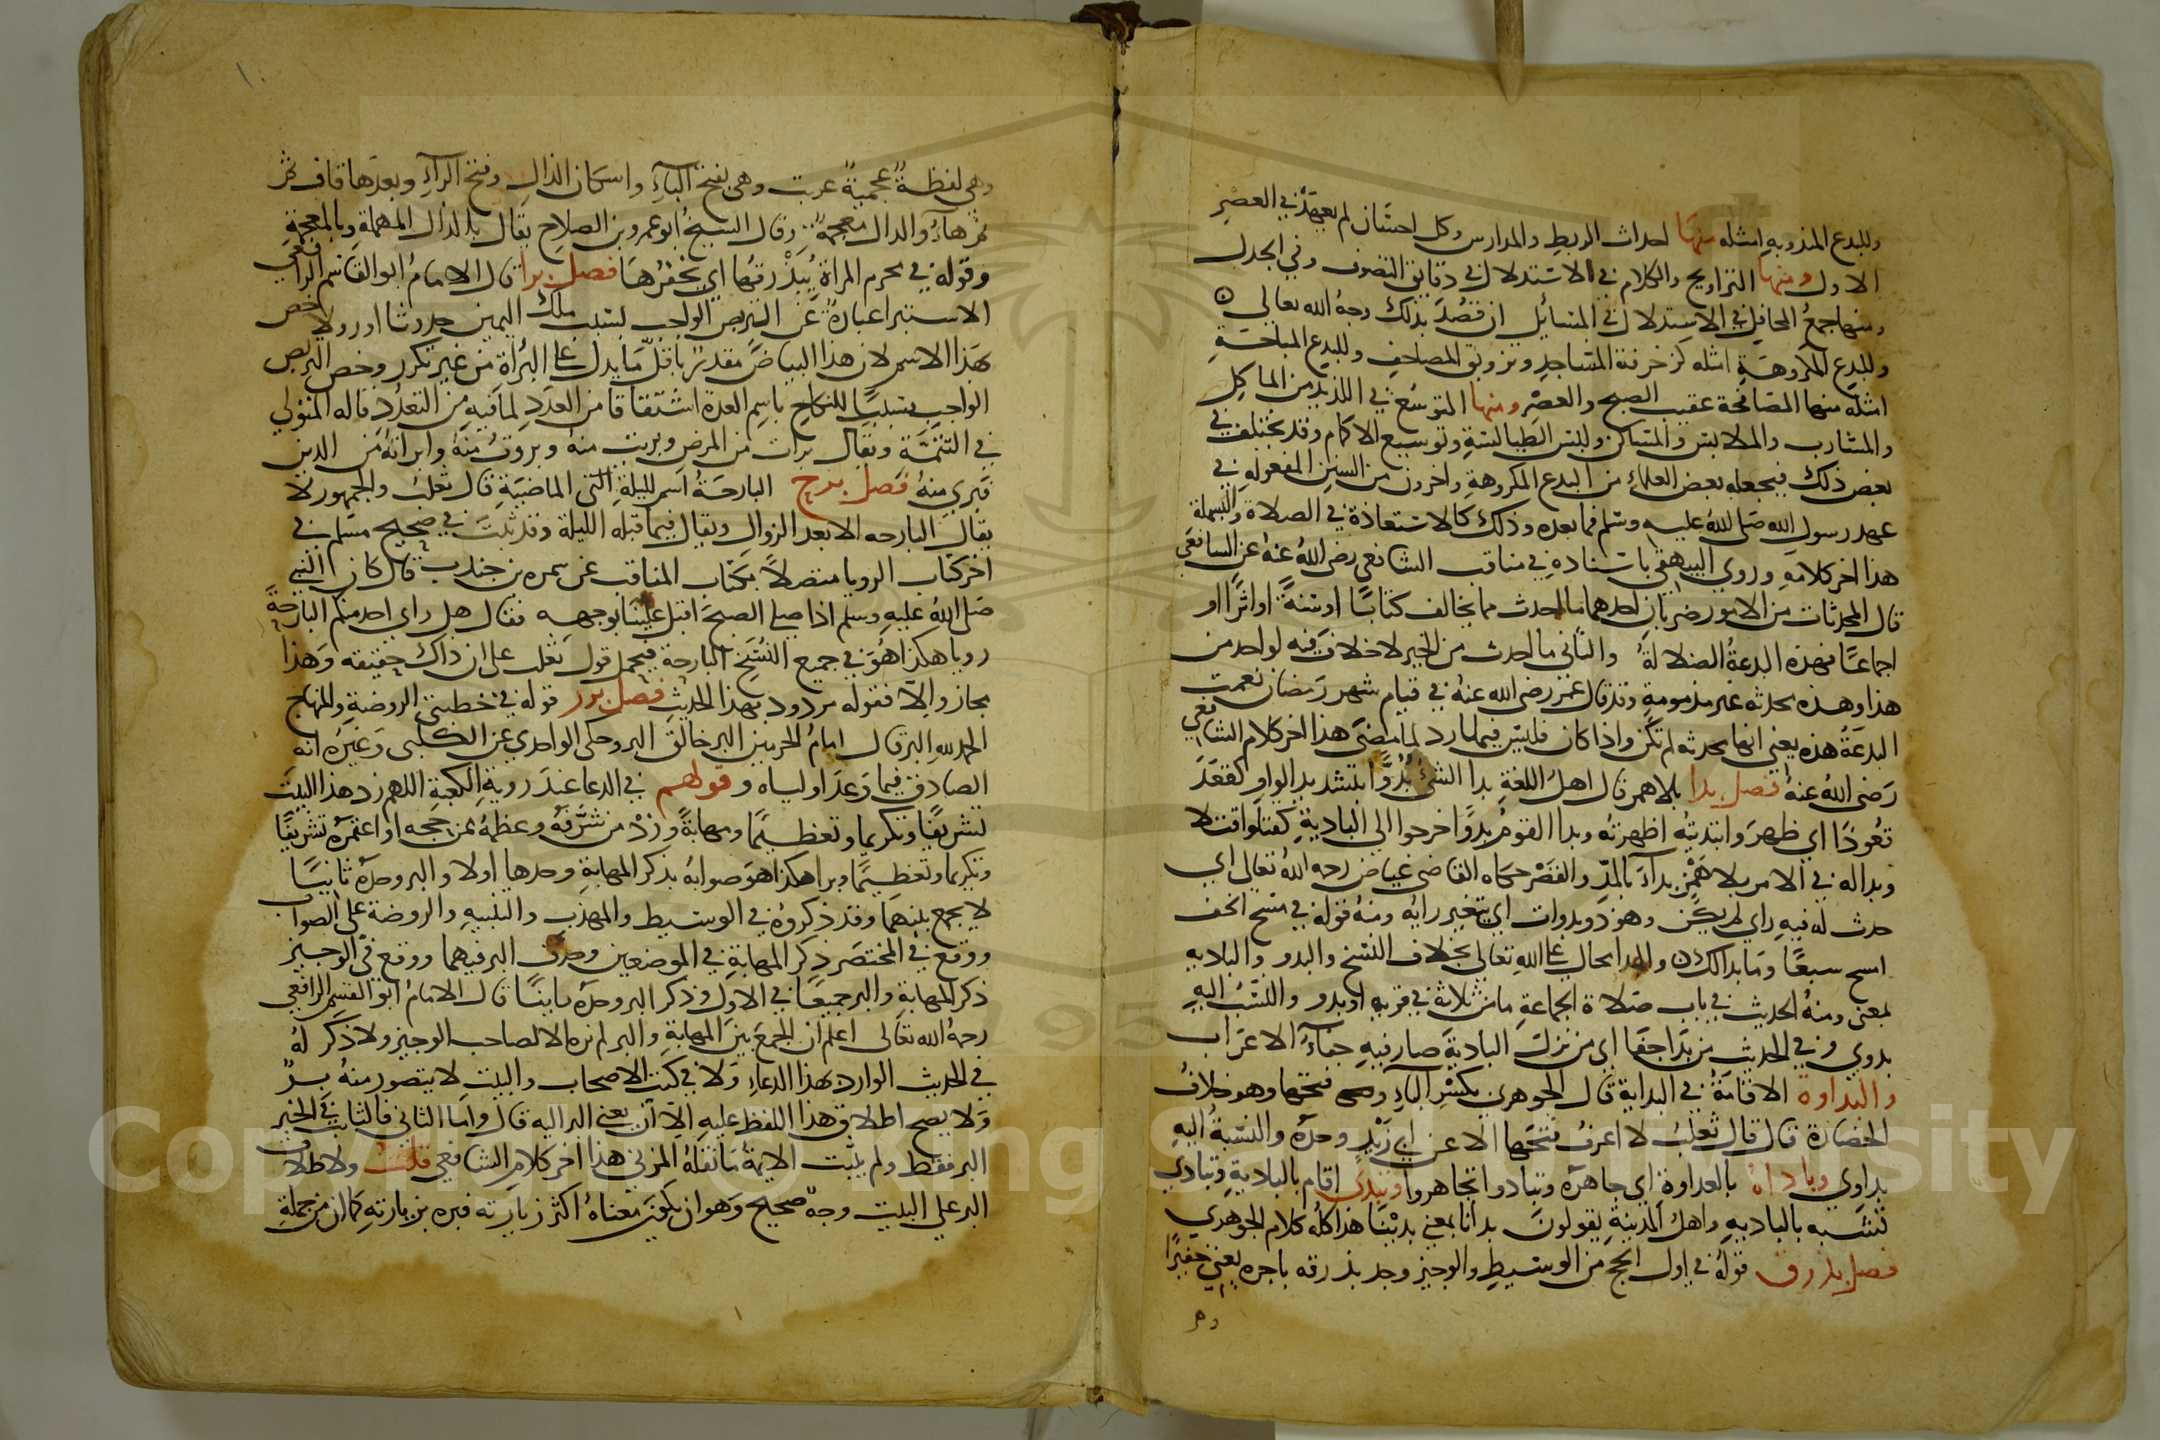 وللبدع المندوبه امثله منها احداث الربط والمدارس وكل احسان لم يعهد في العصر
الاول ومنها التراويح والكلام في دقايق التصوف وفي الجدل
ومنها جمع المحافل في الاستدلال في المسائل ان قصد بذلك وجه الله تعالى
وللبدع المكروهة امثله كزخرفة المساجد وتزويق المصاحف وللبدع المباحة
امثله منها المصافحة عقيب الصبح والعصر ومنها التوسع في اللذيذ من الماكل
والمشارب والملابس والمساكن ولبس الطيالسة وتوسيع الاكمام وقد يختلف في
بعض ذلك فيجعله بعض العلماء من البدع المكروهة واخرون من السنن المفعولة في
عهد رسول الله صلى الله عليه وسلم فما بعده وذلك كالاستعاذة في الصلاة والبسملة
هذا اخر كلامه وروى البيهقي باسناده في مناقب الشافعي رضي الله عنه عن الشافعي
قال المحدثات من الامور ضربان احدهما ما احدث مما يخالف كتابا او سنة او اثرا او
اجماعا فهذه البدعة الضلالة والثاني ما احدث من الخير لا خلاف فيه لواحد من
هذا وهذه محدثه غير مذمومة وقد قال عمر رضي الله عنه في قيام شهر رمضان نعمت
البدعة هذه يعني انها محدثه لم تكن واذا كان فليس فيها رد لما مضى هذا اخر كلام الشافعي
رضي الله عنه فصل بدا بلا همز قال اهل اللغة بدا الشئ بدوا بتشديد الواو كقعد
قعودا اي ظهر وابديته اظهرته وبدا القوم بدوا خرجوا الى البادية كقتلوا قتلا
وبدا له في الامر بلا همز بداء بالمد والقصر حكاه القاضي عياض رحمه الله تعالى اي
حدث له فيه راي لم يكن وهو ذو بدوات اي يتغير رايه ومنه قوله في مسح الخف
امسح سبعا وما بدا لك والبدا محال على الله تعالى بخلاف النسخ والبدو والباديه
بمعنى ومنه الحديث في باب صلاة الجماعة ما من ثلاثة في قريه او بدو والنسب اليه
بدوي وفي الحديث من بدا جفا اي من نزل البادية صار فيه جفاء الاعراب
والبداوة الاقامة في البداية قال الجوهري بكسر الباء وفتحها وهو خلاف
الحضارة قال قال ثعلب لا اعرف فتحها الا عن ابي زيد وحده والنسبة اليه
بداوي وباداه بالعداوة اي جاهره وتبادوا تجاهروا وتبدى اقام بالبادية وتبادى
تشبه بالباديه واهل المدينة يقولون بدانا بمعنى بدينا هذا كله كلام الجوهري
فصل بذرق قوله في اول الحج من الوسيط والوجيز وجد بذرقه باجره يعني خفيرا
وهي لفظة عجمية عربت وهي بفتح الباء واسكان الذال وفتح الراء وبعدها قاف ثم
ثم هاء والذال معجمة وقال الشيخ ابو عمرو بن الصلاح يقال بالدال المهملة وبالمعجمة
وقوله في محرم المراة يبذرقها اي يخفرها فصل برا قال الامام ابو القاسم الرافعي
الاستبرا عبارة عن التربص الواجب بسبب ملك اليمين حدوثا او زوالا خص
بهذا الاسم لان هذا البياض مقدر باقل ما يدل على البراة من غير تكرر وخص التربص
الواجب بسبب النكاح باسم العدة اشتقاقا من العدد لما فيه من التعدد قاله المتولي
في التتمة ويقال برات من المرض وبريت منه وبروت منه وابراته من الدين
فبرى منه فصل برح البارحة اسم لليلة التي الماضية قال ثعلب والجمهور لا
يقال البارحه الا بعد الزوال ويقال فيما قبله الليلة وقد ثبت في صحيح مسلم في
اخر كتاب الرويا متصلا بكتاب المناقب عن سمره بن جندب قال كان النبي
صلى الله عليه وسلم اذا صلى الصبح اقبل علينا بوجهه فقال هل راى احد منكم البارحة
رويا هكذا هو في جميع النسخ البارحة فيحمل قول ثعلب على ان ذاك حقيقه وهذا
مجاز والا فقوله مردود بهذا الحديث فصل برر قوله في خطبتي الروضة والمنهاج
الحمد لله البر قال امام الحرمين البر خالق البر وحكى الواحدي عن الكلبي وغيره انه
الصادق فيما وعد اولياه وقولهم في الدعا عند روية الكعبة اللهم زد هذا البيت
تشريفا وتكريما وتعظيما ومهابة وزد من شرفه وعظمه ممن حجه او اعتمره تشريفا
وتكريما وتعظيما وبرا هكذا هو صوابه بذكر المهابة وحدها اولا والبر وحده ثانيا
لا يجمع بينهما وقد ذكروه في الوسيط والمهذب والتنبيه والروضة على الصواب
ووقع في المختصر ذكر المهابة في الموضعين وحذف البر فيهما ووقع في الوجيز
ذكر المهابة والبر جميعا في الاول وذكر البر وحده ثانيا قال الامام ابو القسم الرافعي
رحمه الله تعالى اعلم ان الجمع بين المهابة والبر لم نره الا لصاحب الوجيز ولا ذكر له
في الحديث الوارد بهذا الدعاء ولا في كتب الاصحاب والبيت لا يتصور منه بر
ولا يصح اطلاق هذا اللفظ عليه الا ان يعني البر اليه قال واما الثاني فالثابت في الخبر
البر فقط ولم يثبت الايمة ما نقله المزني هذا اخر كلام الشافعي قلت ولاطلاق
البر على البيت وجه صحيح وهو ان يكون معناه اكثر زيارته فبره بزيارته كما ان من جملة
Copyright © King Saud University